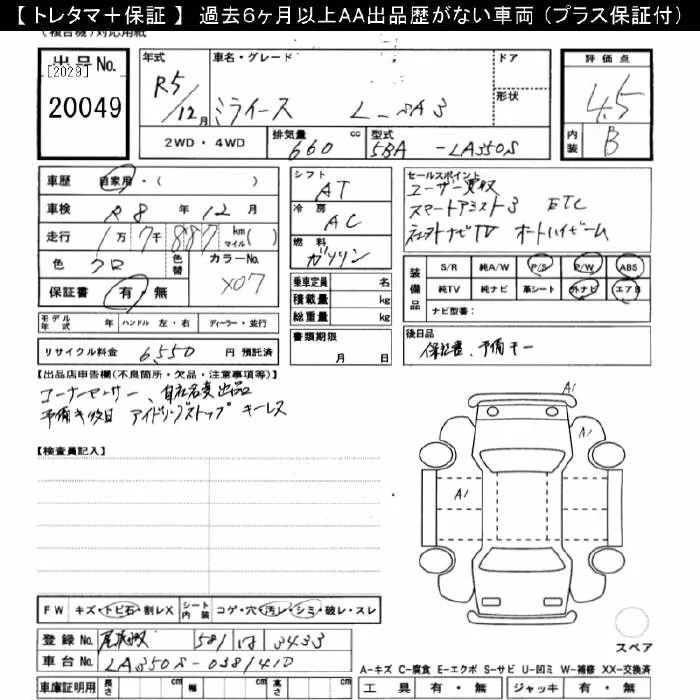 【 トレタマ＋保証 】 過去６ヶ月以上ＡＡ出品歴がない車両 （プラス保証付）
(複合機)対応用紙
出品No. [2029] 20049
年式 R5/12月 車名・グレード ミライース L-SA3 ドア 形状
評価点 4.5 内装 B
2WD・4WD 排気量 660 cc 型式 5BA -LA350S
車歴 自家用・( )
車検 R8 年 12 月
走行 1万 7千 887 km マイル( )
色 クロ 色替 カラーNo. X07
保証書 有・無
シフト AT
冷房 AC
燃料 ガソリン
乗車定員 名
積載量 kg
総重量 kg
書類期限 月 日
セールスポイント
ユーザー買取
スマートアシスト3 ETC
社外ナビTV オートハイビーム
装備品 S/R 純A/W P/S P/W ABS
純TV 純ナビ 革シート 外ナビ エアB
ナビ型番：
モデル年式 年 ハンドル 左・右 ディーラー・並行
リサイクル料金 6,550 円 預託済
後日品
保証書、予備キー
【出品店申告欄(不良箇所・欠品・注意事項等)】
コーナーセンサー、自社名変出品
予備キ後日 アイドリングストップ キーレス
【検査員記入】
A1
A1
A1
スペア
FW キズ・トビ石・割レX シート内装 コゲ・穴・汚レ・シミ・破レ・スレ
登録No. 尾張小牧 581 は 3433
車台No. LA350S-0381410
A-キズ C-腐食 E-エクボ S-サビ U-凹ミ W-補修 XX-交換済
車庫証明用 長さ cm 幅 cm 高さ cm 工具 有・無 ジャッキ 有・無